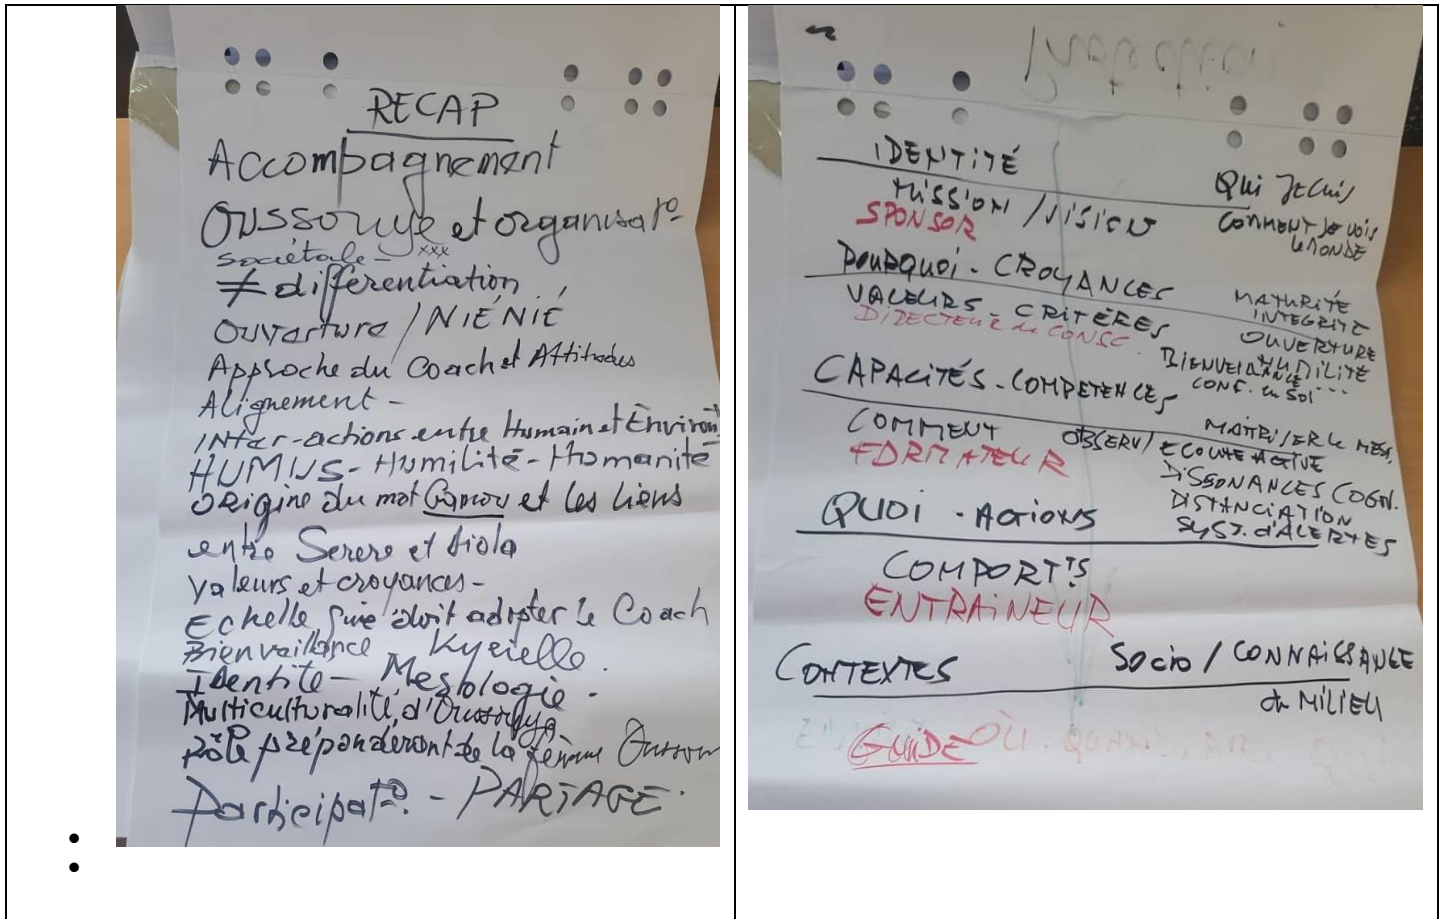 RECAP
Accompagnement
Oussouye et organisat°
sociétale - xxx
≠ differentiation
Ouverture / NIÉNIÉ
Approche du Coach et Attitudes
Alignement -
INter-actions entre Humain et Environt
HUMUS - Humilité - Humanité
Origine du mot Gamou et les liens
entre Serere et diola
Valeurs et croyances -
Echelle que doit adopter le Coach
Bienveillance Kyrielle.
Identité - Mesologie.
Multiculturalité d'Oussouye
rôle prépondérant de la femme
Participat°. - PARTAGE.
IDENTITÉ
QUI JE SUIS
MISSION / VISION
COMMENT JE VOIS
LE MONDE
SPONSOR
POURQUOI - CROYANCES
MATURITÉ
INTEGRITÉ
VALEURS - CRITÈRES
OUVERTURE
DIRECTEUR de CONSC.
HUMILITÉ
BIENVEILLANCE...
CONF. en SOI
CAPACITÉS - COMPETENCES
MAITRISER LE MESS.
COMMENT
OBSERV / ECOUTE ACTIVE
FORMATEUR
DISSONANCES COGN.
DISTANCIATION
SYST. d'ALERTES
QUOI - ACTIONS
COMPORTTS
ENTRAINEUR
CONTEXTES
SOCIO / CONNAISSANCE
du MILIEU
GUIDE